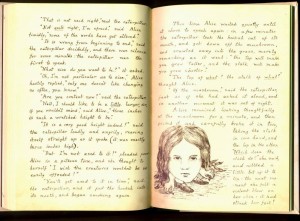 "That is not said right," said the caterpillar.
"Not quite right, I'm afraid," said Alice,
timidly, "some of the words have got altered."
"It is wrong from beginning to end," said
the caterpillar decidedly, and there was silence
for some minutes: the caterpillar was the
first to speak.
"What size do you want to be?" it asked.
"Oh, I'm not particular as to size," Alice
hastily replied, "only one doesn't like changing
so often, you know."
"Are you content now?" said the caterpillar.
"Well, I should like to be a little larger, sir,
if you wouldn't mind," said Alice, "three inches
is such a wretched height to be."
"It is a very good height indeed!" said
the caterpillar loudly and angrily, rearing
itself straight up as it spoke (it was exactly
three inches high).
"But I'm not used to it!" pleaded poor
Alice in a piteous tone, and she thought to
herself "I wish the creatures wouldn't be so
easily offended!"
"You'll get used to it in time," said
the caterpillar, and it put the hookah into
its mouth, and began smoking again.
This time Alice waited quietly until
it chose to speak again: in a few minutes
the caterpillar took the hookah out of its
mouth, and got down off the mushroom,
and crawled away into the grass, merely
remarking as it went: "the top will make
you grow taller, and the stalk will make
you grow shorter."
"The top of what? the stalk of what?"
thought Alice.
"Of the mushroom," said the caterpillar,
just as if she had asked it aloud, and in
another moment it was out of sight.
Alice remained looking thoughtfully
at the mushroom for a minute, and then
picked it and carefully broke it in two,
taking the stalk
in one hand, and
the top in the other.